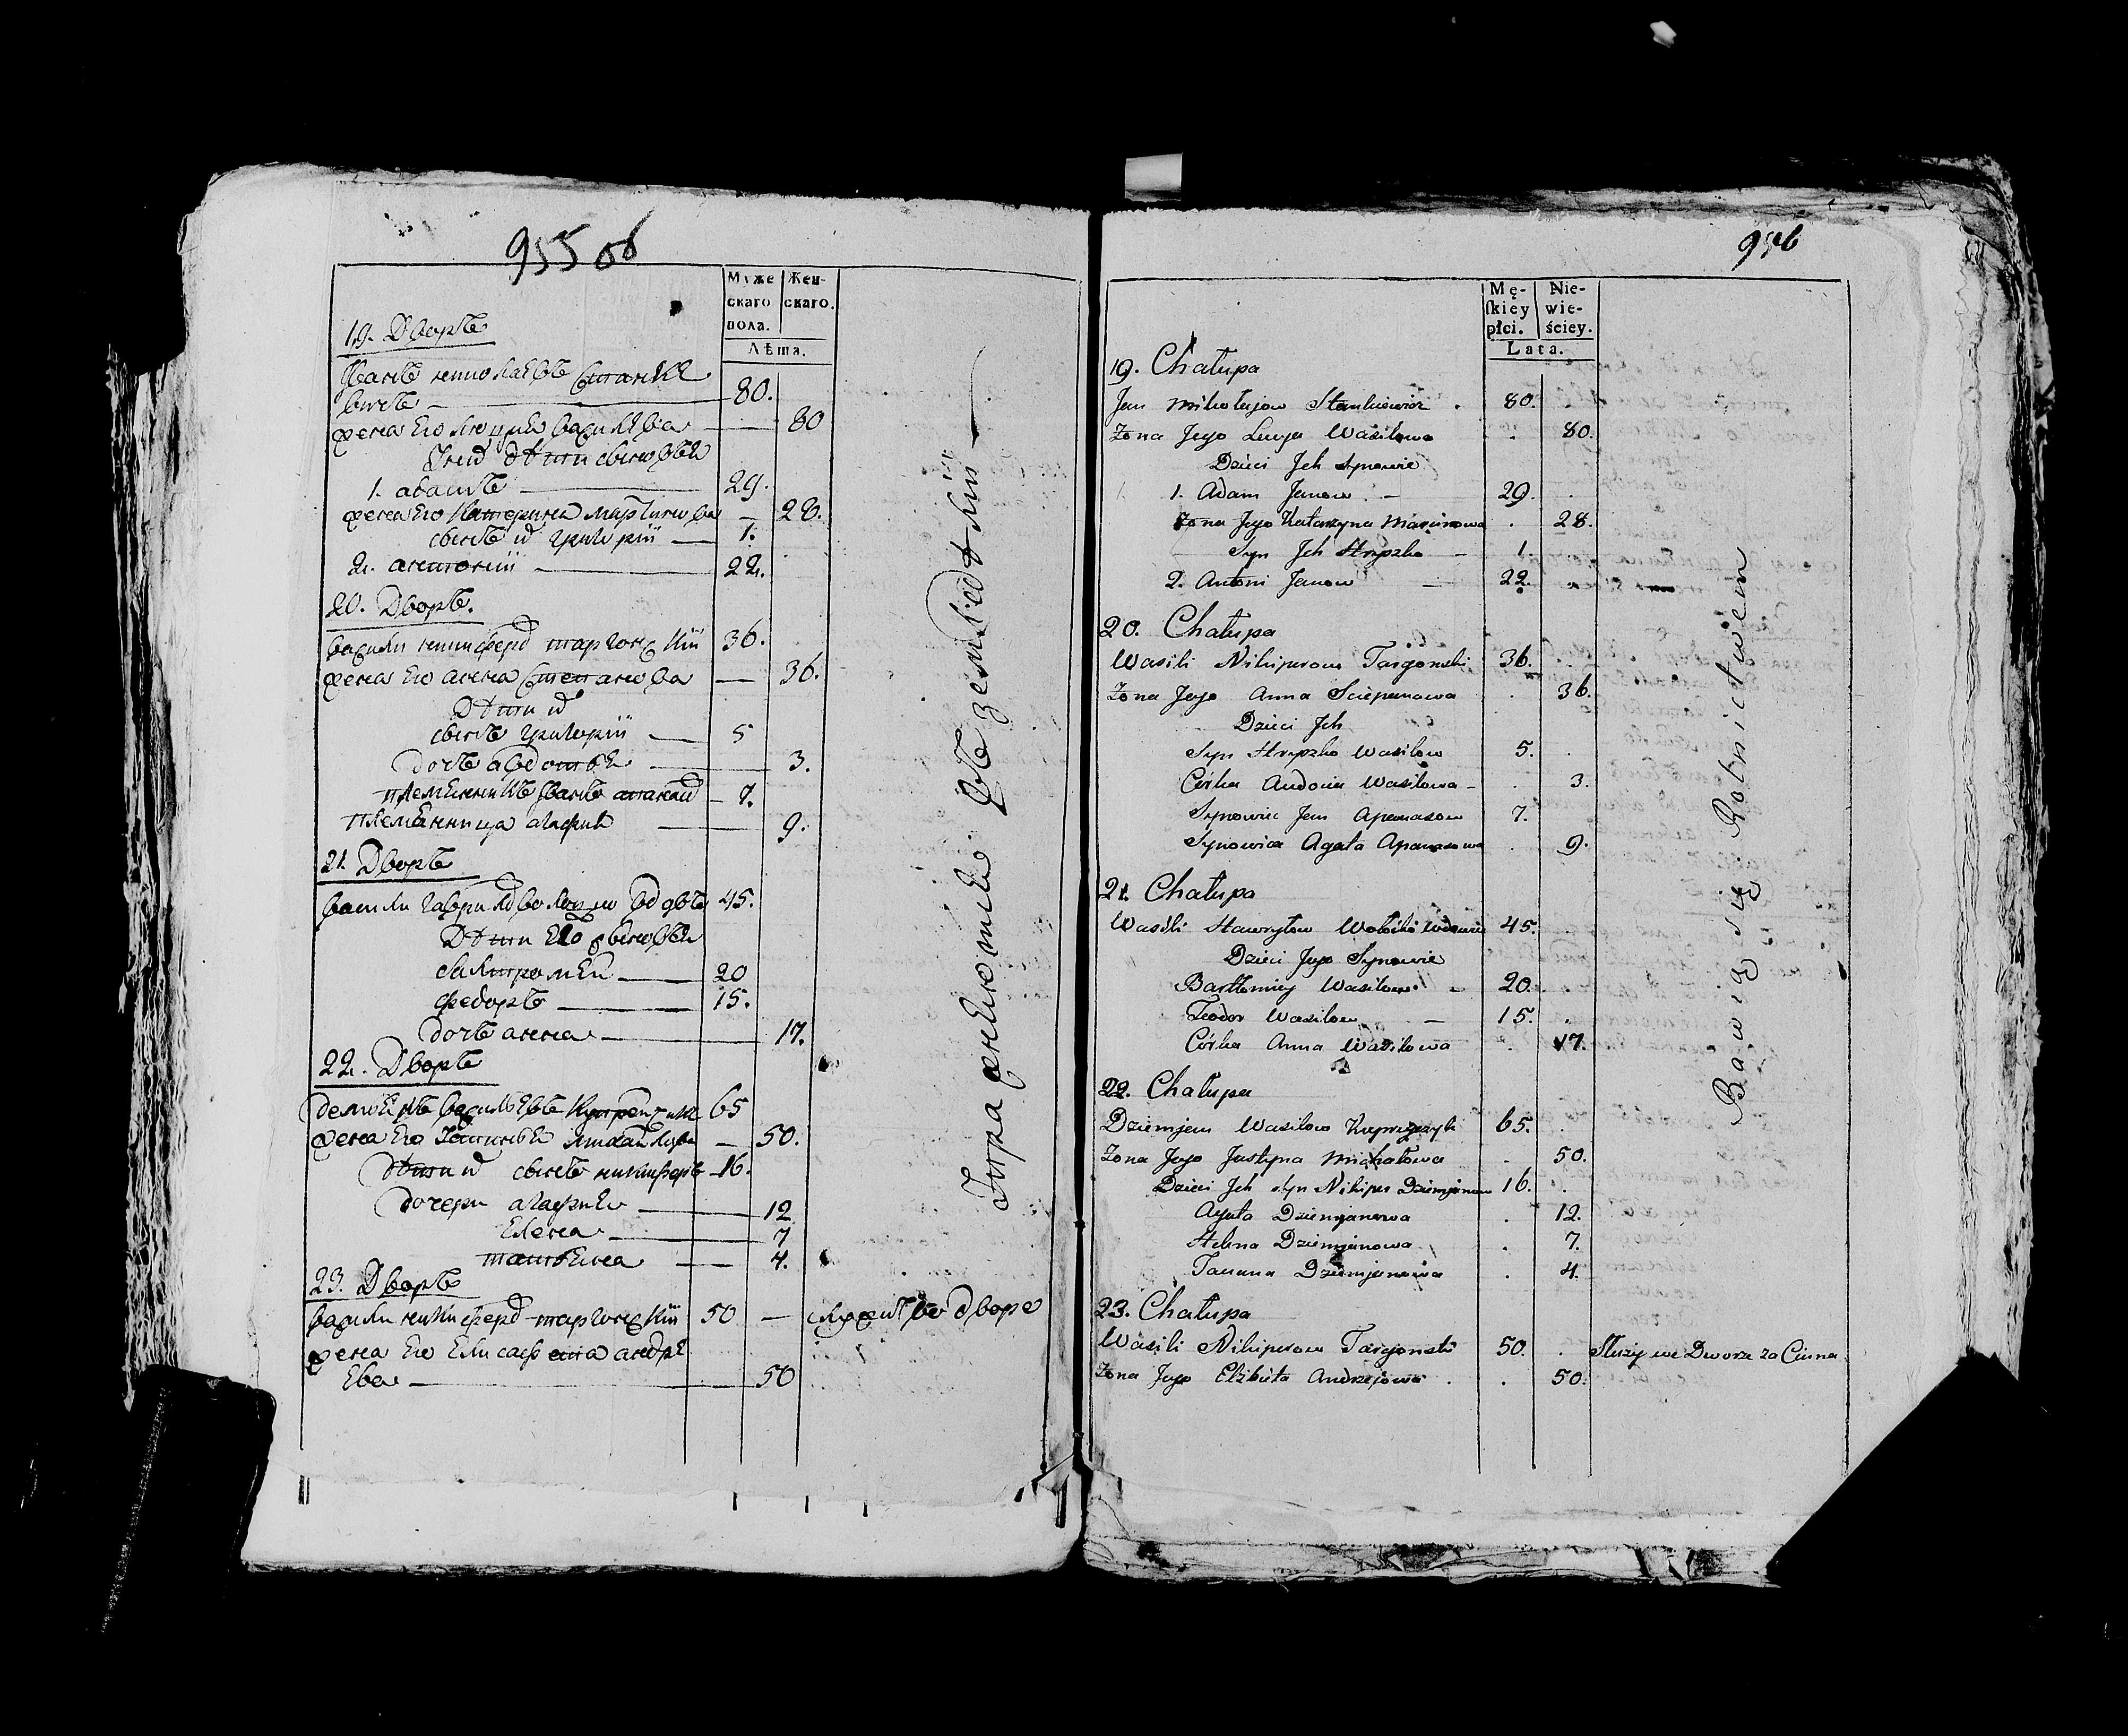 955 об
Муже
скаго
пола.
Жен-
скаго.
Лѣта.
19. Дворъ
Иванъ николаевъ станке
вичъ — 80.
жена его люция васильева — 80
Ихъ дѣти сыновья
1. адамъ — 29.
жена его Катерина мартинова — 28.
сынъ их григорій — 1.
2. антоній — 22.
20. Дворъ.
васили никифоровъ таргонскій 36.
жена его анна степанова — 36.
Дѣти их
сынъ григорій — 5
дочь авдотья — 3.
племянникъ Иванъ — 7.
племянница агафия — 9.
21. Дворъ
васили гаврилов вдовъ 45.
Дѣти Его сыновья
балтромей — 20
федоръ — 15.
дочь анна — 17.
22. Дворъ
демьянъ васильевъ 65
жена его Устинья михайлова — 50.
Дѣти их сынъ никифоръ — 16.
дочери агафия — 12
елена — 7
татьяна — 4.
23. Дворъ
васили никифоровъ таргонскій 50 — служитъ во дворе
жена его елисавета андре
ева — 50
Упражняются въ земледѣліи —
956
Mę-
skiey
płci.
Nie-
wie-
ściey.
Lata.
19. Chałupa
Jan Mikołajow Stankiewicz . 80.
Żona Jego Lucya Wasilowa . 80.
Dzieci Jch Synowie
1. Adam Janow — 29.
Żona Jego Katarzyna Marcinowa . 28.
Syn Jch Hryszko — 1.
2. Antoni Janow — 22.
20. Chałupa
Wasili Nikiperow Targonski 36.
Żona Jego Anna Sciepanowa . 36.
Dzieci Jch
Syn Hryszko Wasilow 5.
Córka Audocia Wasilowa — . 3.
Synowiec Jan Apanasow 7.
Synowica Agata Apanasowa . 9.
21. Chałupa
Wasili Hawryłow Wdowiec 45.
Dzieci Jego Synowie
Bartłomiey Wasilow — 20.
Teodor Wasilow — 15.
Córka Anna Wasilowa . 17.
22. Chałupa
Dziemjan Wasilow Kuprzyczyk 65.
Żona Jego Justyna Michałowa . 50.
Dzieci Jch Syn Nikiper Dziemjanow 16.
Agata Dziemjanowa . 12.
Helena Dziemjanowa . 7.
Taciana Dziemjanowa . 4.
23. Chałupa
Wasili Nikiperow Targonski 50. . Służy we Dworze za Ciwna
Żona Jego Elżbieta Andrzejowa . . 50.
Bawią się Robnictwem